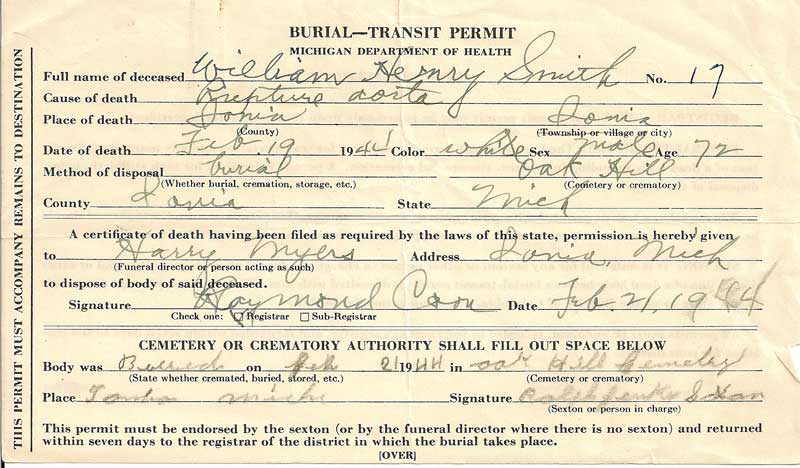 BURIAL—TRANSIT PERMIT
MICHIGAN DEPARTMENT OF HEALTH
Full name of deceased William Henry Smith No. 17
Cause of death Rupture aorta
Place of death Ionia Ionia
(County) (Township or village or city)
Date of death Feb. 19 1944 Color white Sex Male Age 72
Method of disposal burial Oak Hill
(Whether burial, cremation, storage, etc.) (Cemetery or crematory)
County Ionia State Mich
A certificate of death having been filed as required by the laws of this state, permission is hereby given
to Harry Myers Address Ionia, Mich
(Funeral director or person acting as such)
to dispose of body of said deceased.
Signature Raymond Date Feb. 21, 1944
Check one: Registrar Sub-Registrar
CEMETERY OR CREMATORY AUTHORITY SHALL FILL OUT SPACE BELOW
Body was Buried on Feb 21 1944 in oak Hill Cemetery
(State whether cremated, buried, stored, etc.) (Cemetery or crematory)
Place Mich Signature
(Sexton or person in charge)
This permit must be endorsed by the sexton (or by the funeral director where there is no sexton) and returned
within seven days to the registrar of the district in which the burial takes place.
[OVER]
THIS PERMIT MUST ACCOMPANY REMAINS TO DESTINATION